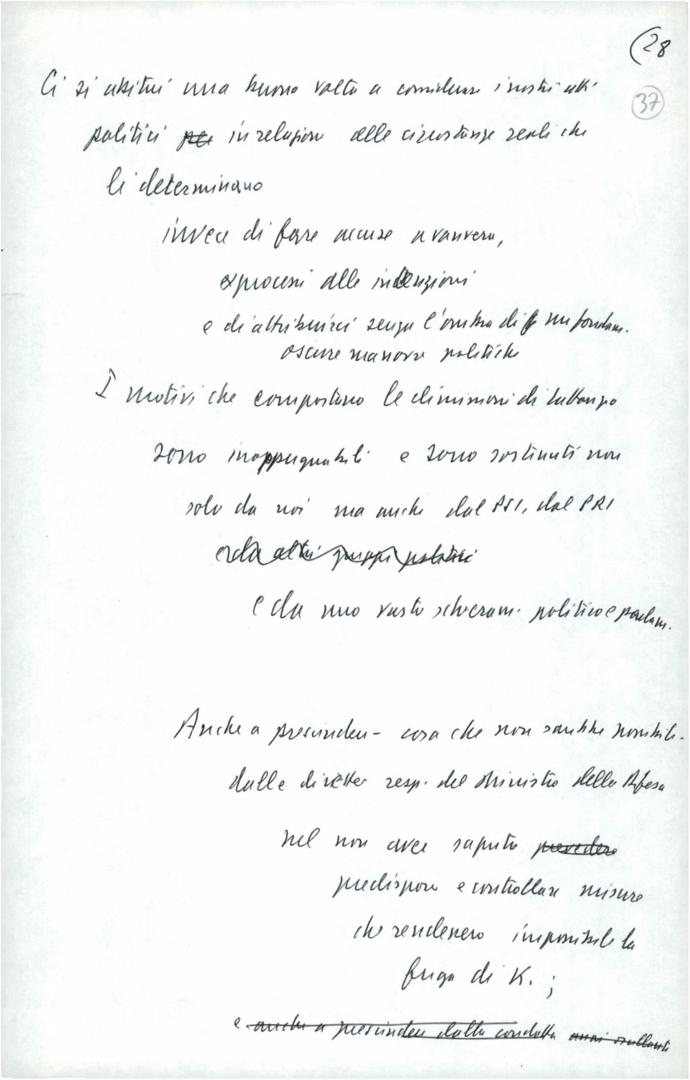 (28
37
Ci si abitui una buona volta a considerare i nostri atti
politici per in relazione alle circostanze reali che
li determinano
invece di fare accuse a vanvera,
e processi alle intenzioni
e di attribuirci senza l'ombra di un fondam.
oscure manovre politiche
I motivi che comportano le dimissioni di Lattanzio
sono inoppugnabili e sono sostenuti non
solo da noi ma anche dal PSI, dal PRI
e da altri gruppi politici
e da uno vasto schieram. politico e parlam.
Anche a prescindere - cosa che non sarebbe possibile -
dalle dirette resp. del Ministro della Difesa
nel non aver saputo prevedere
predisporre e controllare misure
che rendessero impossibile la
fuga di K. ;
e anche a prescindere dalla condotta